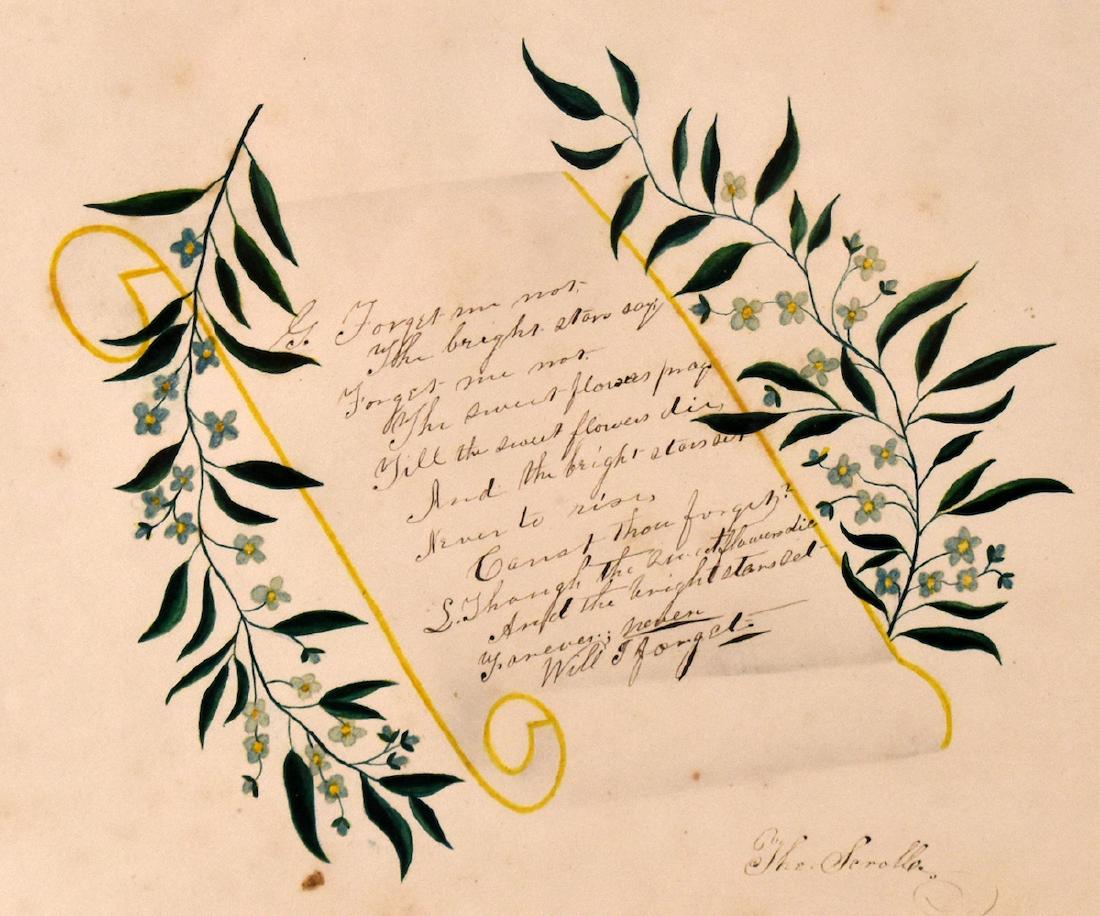 G. Forget me not.
The bright stars say,
Forget me not.
The sweet flowers pray
Till the sweet flowers die,
And the bright stars set
Never to rise,
Canst thou forget?
L. Though the sweet flowers die
And the bright stars set
Forever; never
Will I forget.
The Scrolle.